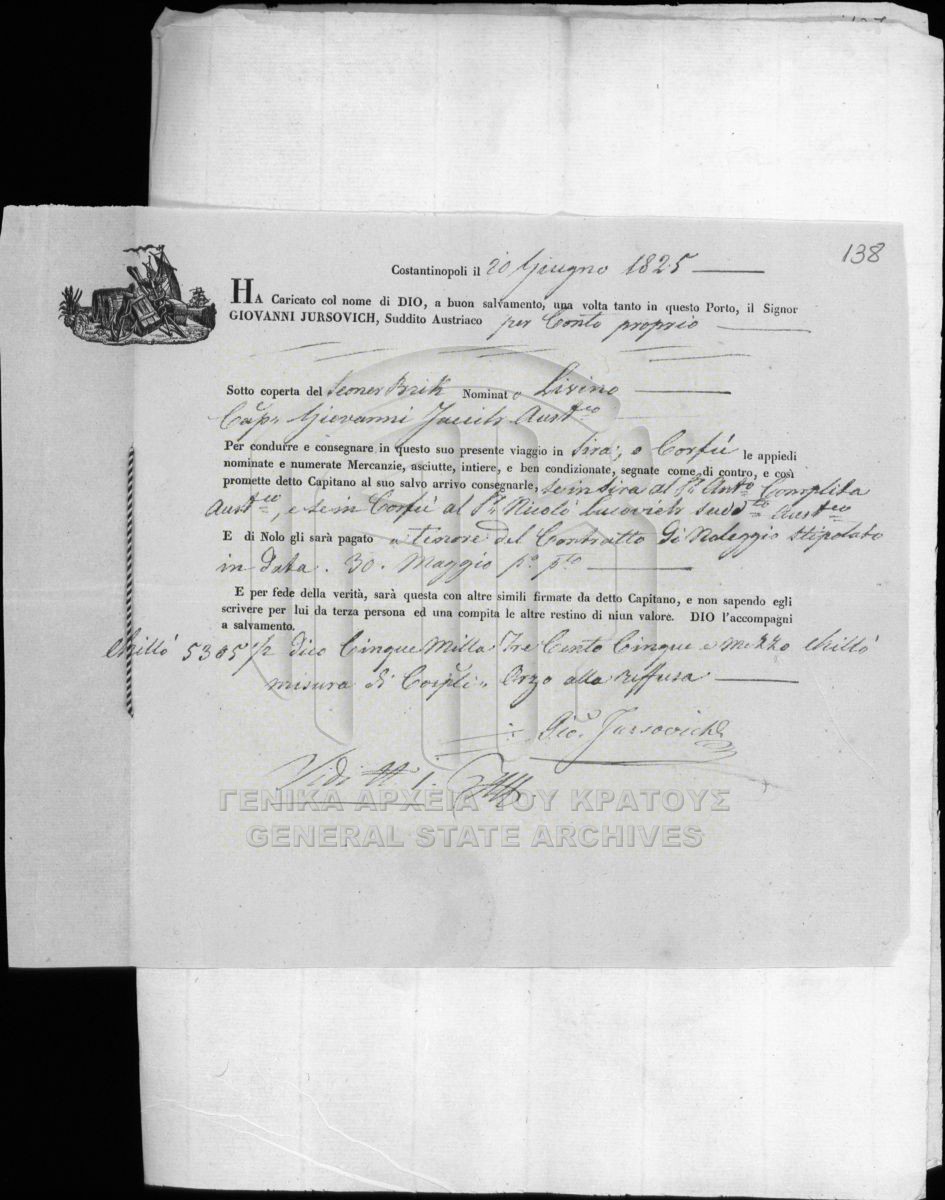 138
Costantinopoli il 20 Giugno 1825
HA Caricato col nome di DIO, a buon salvamento, una volta tanto in questo Porto, il Signor
GIOVANNI JURSOVICH, Suddito Austriaco per Conto proprio
Sotto coperta del Sconer Brik Nominato
Cap.n Giovanni Aust.co
Per condurre e consegnare in questo suo presente viaggio in Sira, o Corfù le appiedi
nominate e numerate Mercanzie, asciutte, intiere, e ben condizionate, segnate come di contro, e così
promette detto Capitano al suo salvo arrivo consegnarle, se in Sira al S.r Ant.o
Aust.co, e se in Corfù al S.r Nicolò sudd.to Aust.co
E di Nolo gli sarà pagato a tenore del Contratto di Noleggio stipolato
in data. 30. Maggio p.o p.to
E per fede della verità, sarà questa con altre simili firmate da detto Capitano, e non sapendo egli
scrivere per lui da terza persona ed una compita le altre restino di niun valore. DIO l'accompagni
a salvamento.
Chillò 5305 1/2 dico Cinque Milla Tre Cento Cinque e Mezzo Chillò
misura di Cospli. Orzo alla Riffusa
Gio. Jursovich
ΓΕΝΙΚΑ ΑΡΧΕΙΑ ΤΟΥ ΚΡΑΤΟΥΣ
GENERAL STATE ARCHIVES